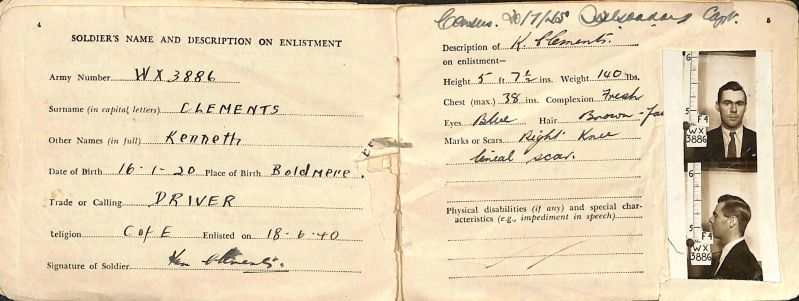 4
SOLDIER'S NAME AND DESCRIPTION ON ENLISTMENT
Army Number WX3886
Surname (in capital letters) CLEMENTS
Other Names (in full) Kenneth
Date of Birth 16-1-20 Place of Birth Boldmere.
Trade or Calling DRIVER
Religion C of E Enlisted on 18-6-40
Signature of Soldier Ken Clements.
Census. 20/7/45 Capt.
5
Description of K. Clements.
on enlistment—
Height 5 ft 7½ ins. Weight 140 lbs.
Chest (max.) 38 ins. Complexion Fresh
Eyes Blue Hair Brown-fair
Marks or Scars Right Knee
lineal scar.
Physical disabilities (if any) and special char-
acteristics (e.g., impediment in speech)
6
5
F4
WX
3886
6
5
F4
WX
3886